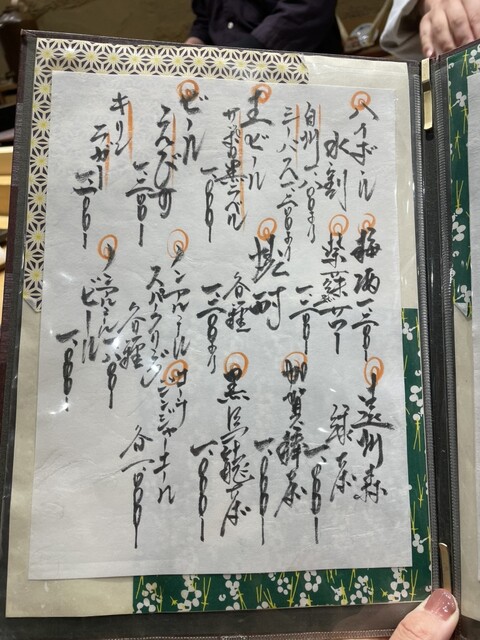 ハイボール
水割
白州 一、八〇〇より
シーバス 一、二〇〇より
生ビール
サッポロ黒ラベル
一、〇〇〇
ビール
ゑびす
一、二〇〇
キリン
ラガー 一、二〇〇
梅酒 一、二〇〇
紫蘇サワー
一、二〇〇
焼酎
各種
一、二〇〇より
ノンアルコール
スパークリング
各種
ノンアルコール
ビール 一、〇〇〇
遠州森
緑茶
一、〇〇〇
加賀棒茶
一、〇〇〇
黒烏龍茶
一、〇〇〇
コーラ
ジンジャーエール
各一、〇〇〇